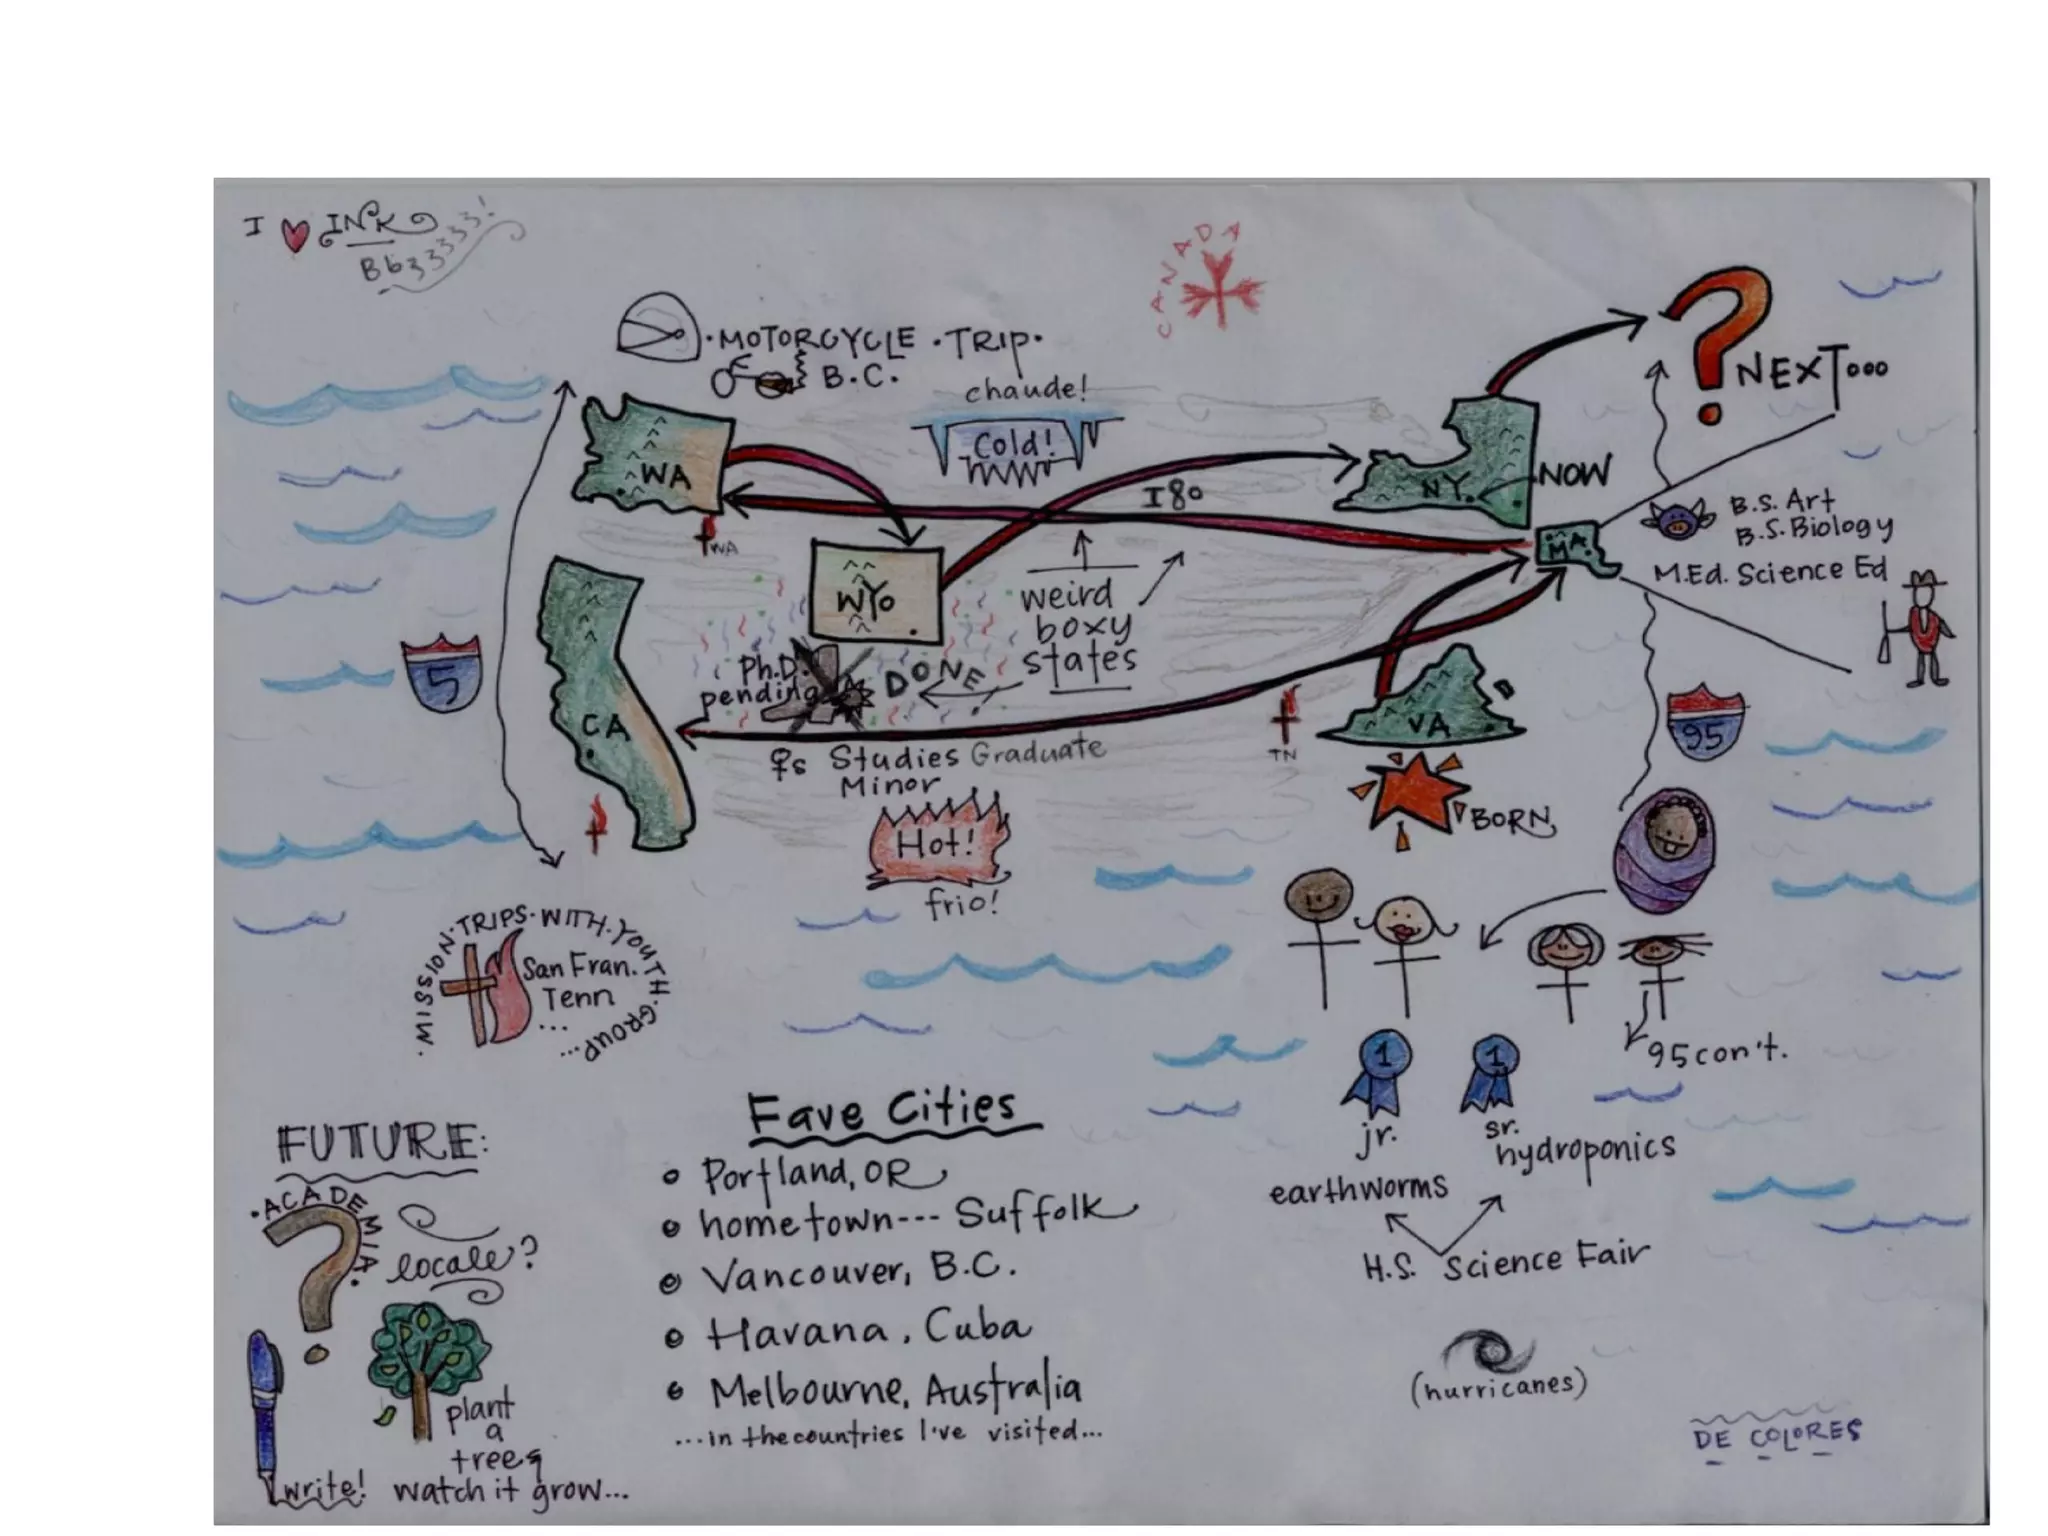 I ♥ INK
CANADA
·MOTORCYCLE·TRIP·
B.C.
chaude!
Cold!
NEXT...
WA
I80
NY
NOW
MA
B.S. Art
B.S. Biology
M.Ed. Science Ed
WA
WYo
weird
boxy
states
5
Ph.D.
pending
DONE
CA
♀s Studies Graduate
Minor
TN
VA
95
BORN
Hot!
frio!
·MISSION·TRIPS·WITH·YOUTH·GROUP...
San Fran.
Tenn
...
95 con't.
1
1
jr.
sr.
hydroponics
earthworms
H.S. Science Fair
(hurricanes)
DE COLORES
FUTURE:
·ACADEMIA·
locale?
plant
a
tree &
write! watch it grow...
Fave Cities
Portland, OR
hometown--- Suffolk
Vancouver, B.C.
Havana, Cuba
Melbourne, Australia
...in the countries I've visited...